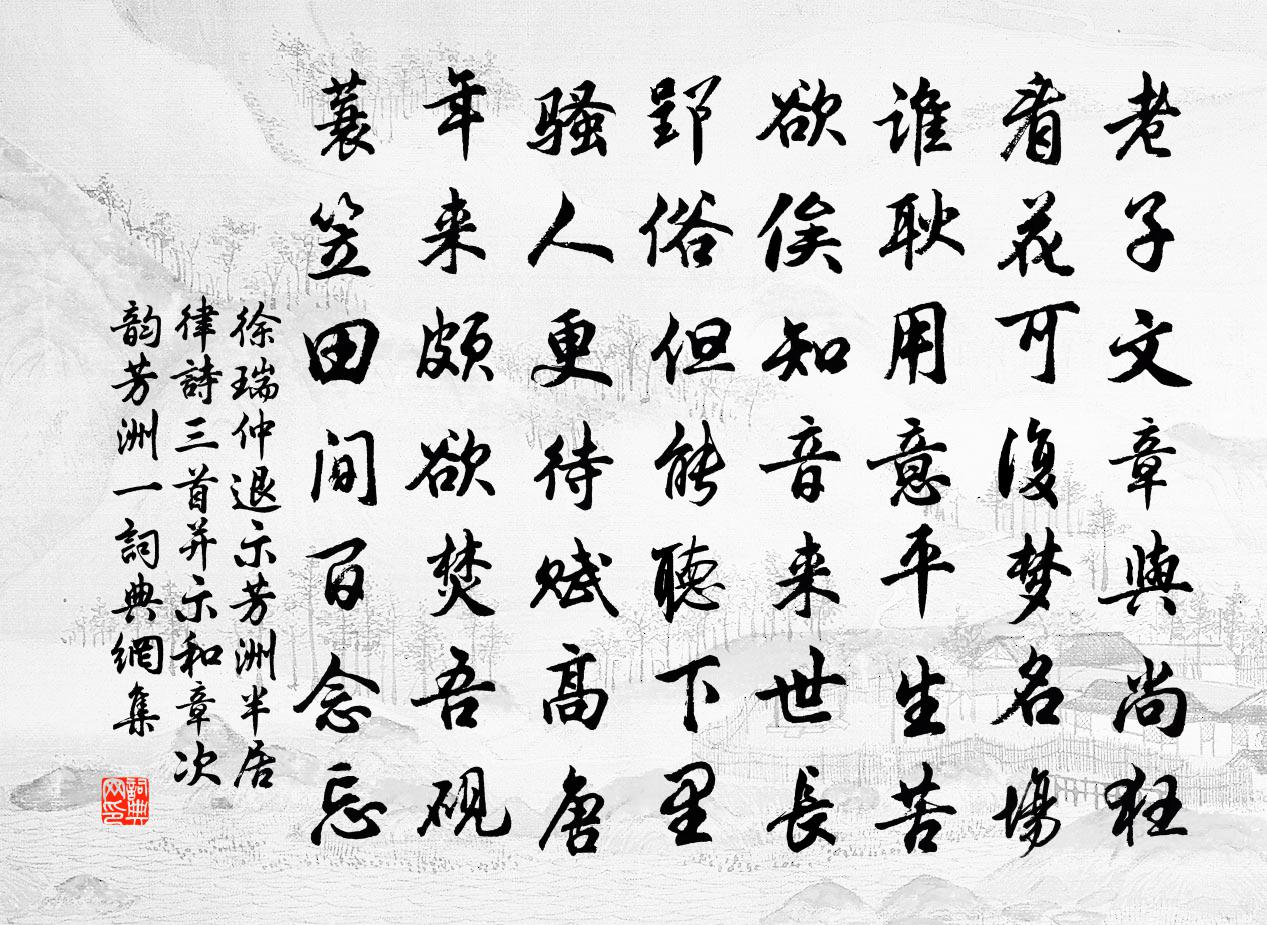 老子文章與尚狂
看花可復梦名場
誰耿用意平生苦
欲俟知音来世長
郢俗但能聽下里
騷人更待賦高唐
年来頗欲焚吾硯
蓑笠田間百念忘
徐瑞仲退示芳洲半居
律詩三首并示和章次
韵芳洲一詞典網集
詞典
网印